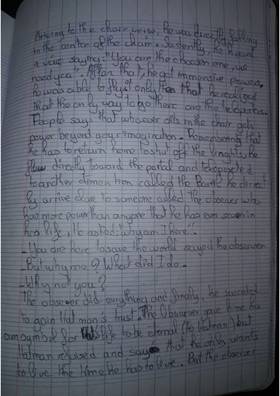 Arriving to the chair verse, he was directly falling
in the center of the chair. Suddenly, he heard
a voice saying: "You are the chosen one, we
need you". After that, he got immensive powers,
he was able to fly! only than that he realised
that the only way to go there are the teleporters.
People says that whoever sits in the chair gets
power beyond any imagination. Remembering that
he has to return home to shut off the lights, he
flew directly toward the portal and teleported
to another dimention called the Bank, he direct
ly arrive close to someone called The Observer who
has more power than anyone that he has ever seen in
his life. He asked "why am I here".
- You are here to save the world sayed the observer
- But why me? What did I do.
- Why not you?
The observer did everything and finally, he succeeded
to gain that man's trust. The Observer gave to me his
symbole for life to be eternal (to the man) but
that man refused and say that he only wants
to live the time he has to live. But the observer